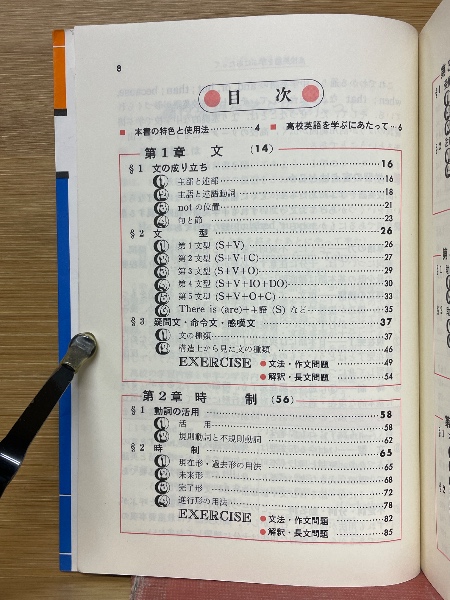 8
目次
■ 本書の特色と使用法 4 ■ 高校英語を学ぶにあたって 6
第1章 文 (14)
§1 文の成り立ち 16
① 主部と述部 16
② 主語と述語動詞 18
③ notの位置 21
④ 句と節 23
§2 文型 26
① 第1文型 (S+V) 26
② 第2文型 (S+V+C) 27
③ 第3文型 (S+V+O) 29
④ 第4文型 (S+V+IO+DO) 30
⑤ 第5文型 (S+V+O+C) 33
⑥ There is (are)++語 (S) など 35
§3 疑問文・命令文・感嘆文 37
① 文の種類 37
② 構造上から見た文の種類 46
EXERCISE ● 文法・作文問題 49
● 解釈・長文問題 54
第2章 時制 (56)
§1 動詞の活用 58
① 活用 58
② 規則動詞と不規則動詞 62
§2 時制 65
① 現在形・過去形の用法 65
② 未来形 68
③ 完了形 72
④ 進行形の用法 78
EXERCISE ● 文法・作文問題 82
● 解釈・長文問題 85